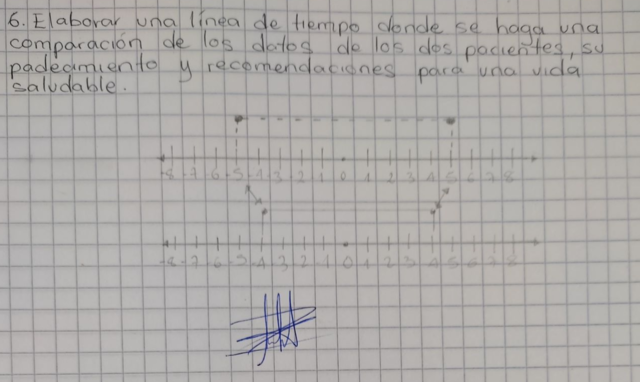 6. Elaborar una línea de tiempo donde se haga una
comparación de los datos de los dos pacientes, su
padecimiento y recomendaciones para una vida
saludable.
-8 -7 -6 -5 -4 -3 -2 -1 0 1 2 3 4 5 6 7 8
-8 -7 -6 -5 -4 -3 -2 -1 0 1 2 3 4 5 6 7 8